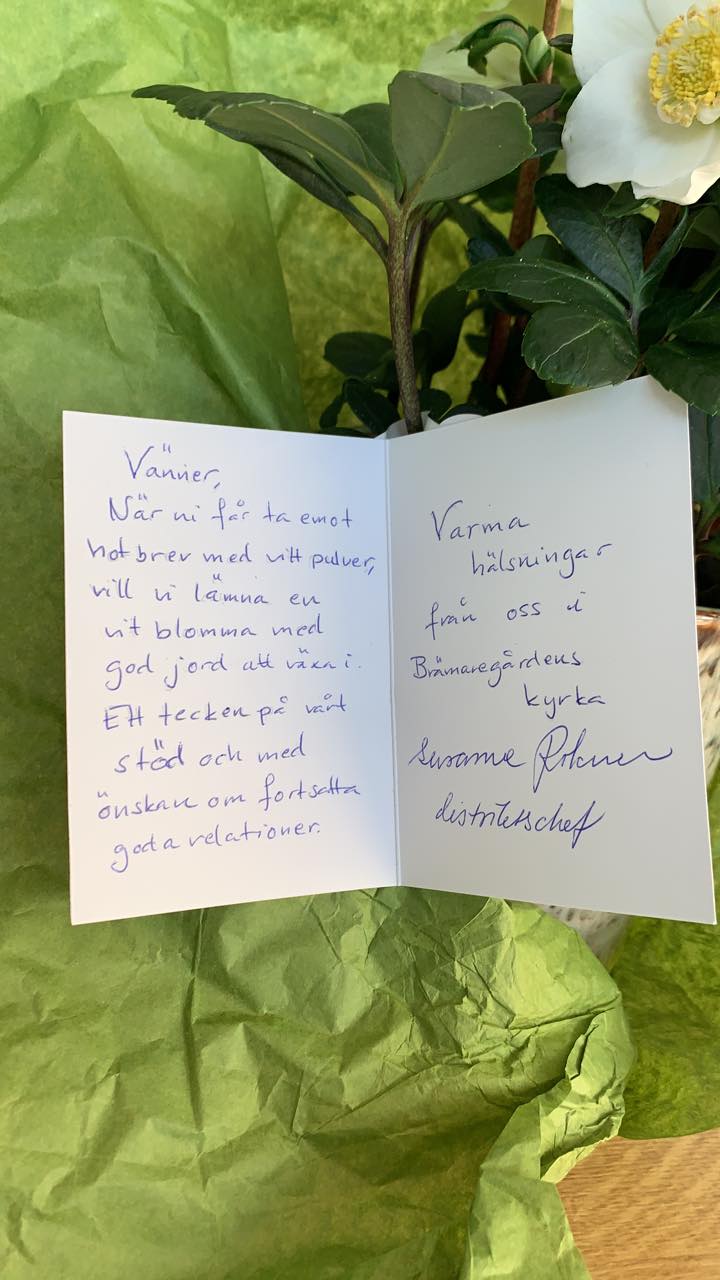 Vänner,
När ni får ta emot
hotbrev med vitt pulver,
vill vi lämna en
vit blomma med
god jord att växa i.
Ett tecken på vårt
stöd och med
önskan om fortsatta
goda relationer.
Varma
hälsningar
från oss i
Brämaregårdens
kyrka
Susanne
distriktschef